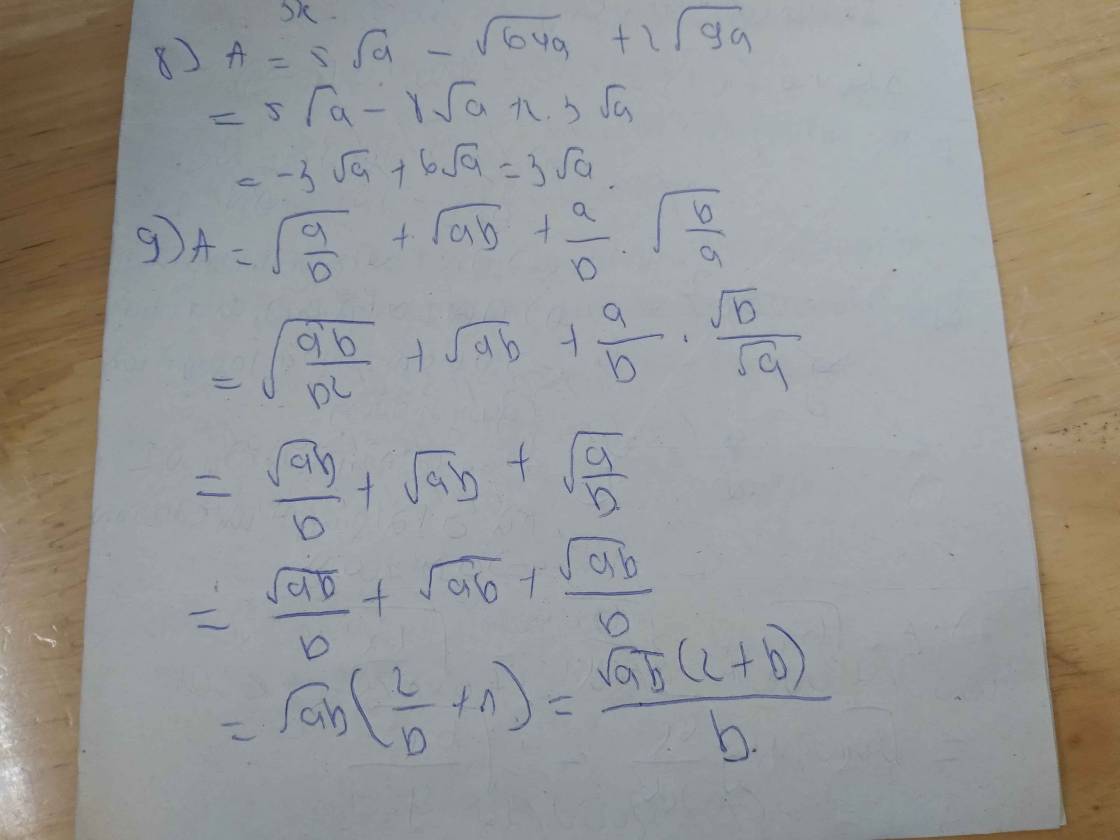 3x.
8) A = 5√a - √64a + 2√9a
= 5√a - 8√a + 2.3√a
= -3√a + 6√a = 3√a.
9) A = √(a/b) + √ab + a/b . √(b/a)
= √(ab/b²) + √ab + a/b . √b/√a
= √ab/b + √ab + √(a/b)
= √ab/b + √ab + √ab/b
= √ab(2/b + 1) = √ab(2+b)/b.